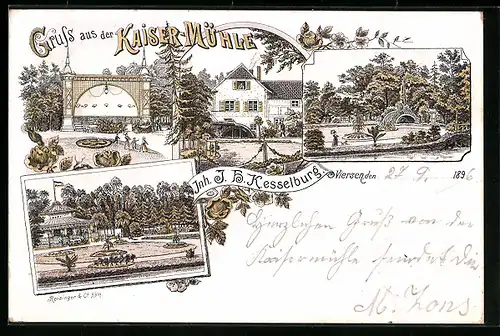 Gruß aus der KAISER-MÜHLE
Inh. J. H. Kesselburg
Viersen, den 27. 9. 1896
Herzlichen Gruß von der
Kaisermühle sendet Dir
M. Zons